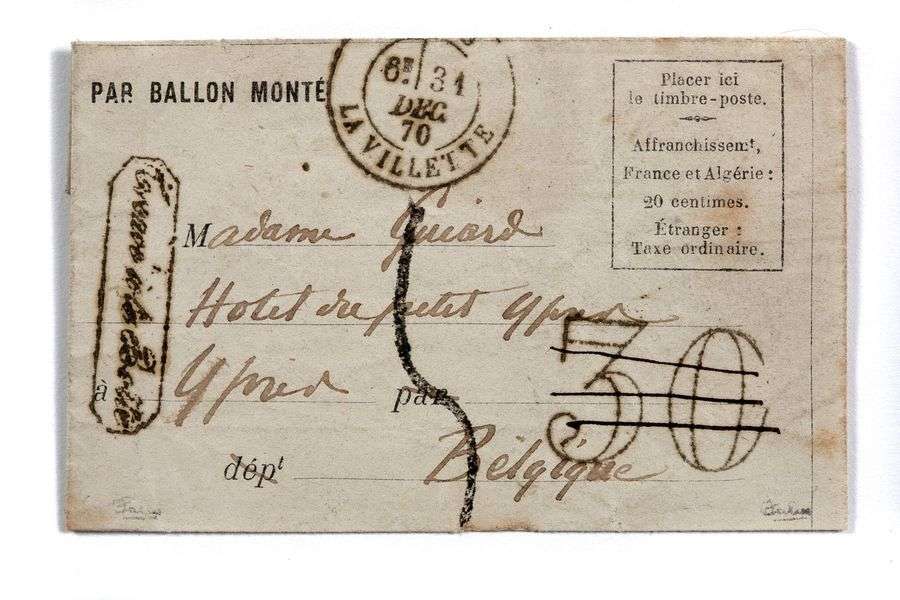 PAR BALLON MONTÉ
6E 31
DEC.
70
LA VILLETTE
Placer ici
le timbre-poste.
Affranchissemt,
France et Algérie :
20 centimes.
Étranger :
Taxe ordinaire.
Trouvé à la Boite
Madame Guiard
Hotel du petit Ypres
à Ypres par
dépt Belgique
30